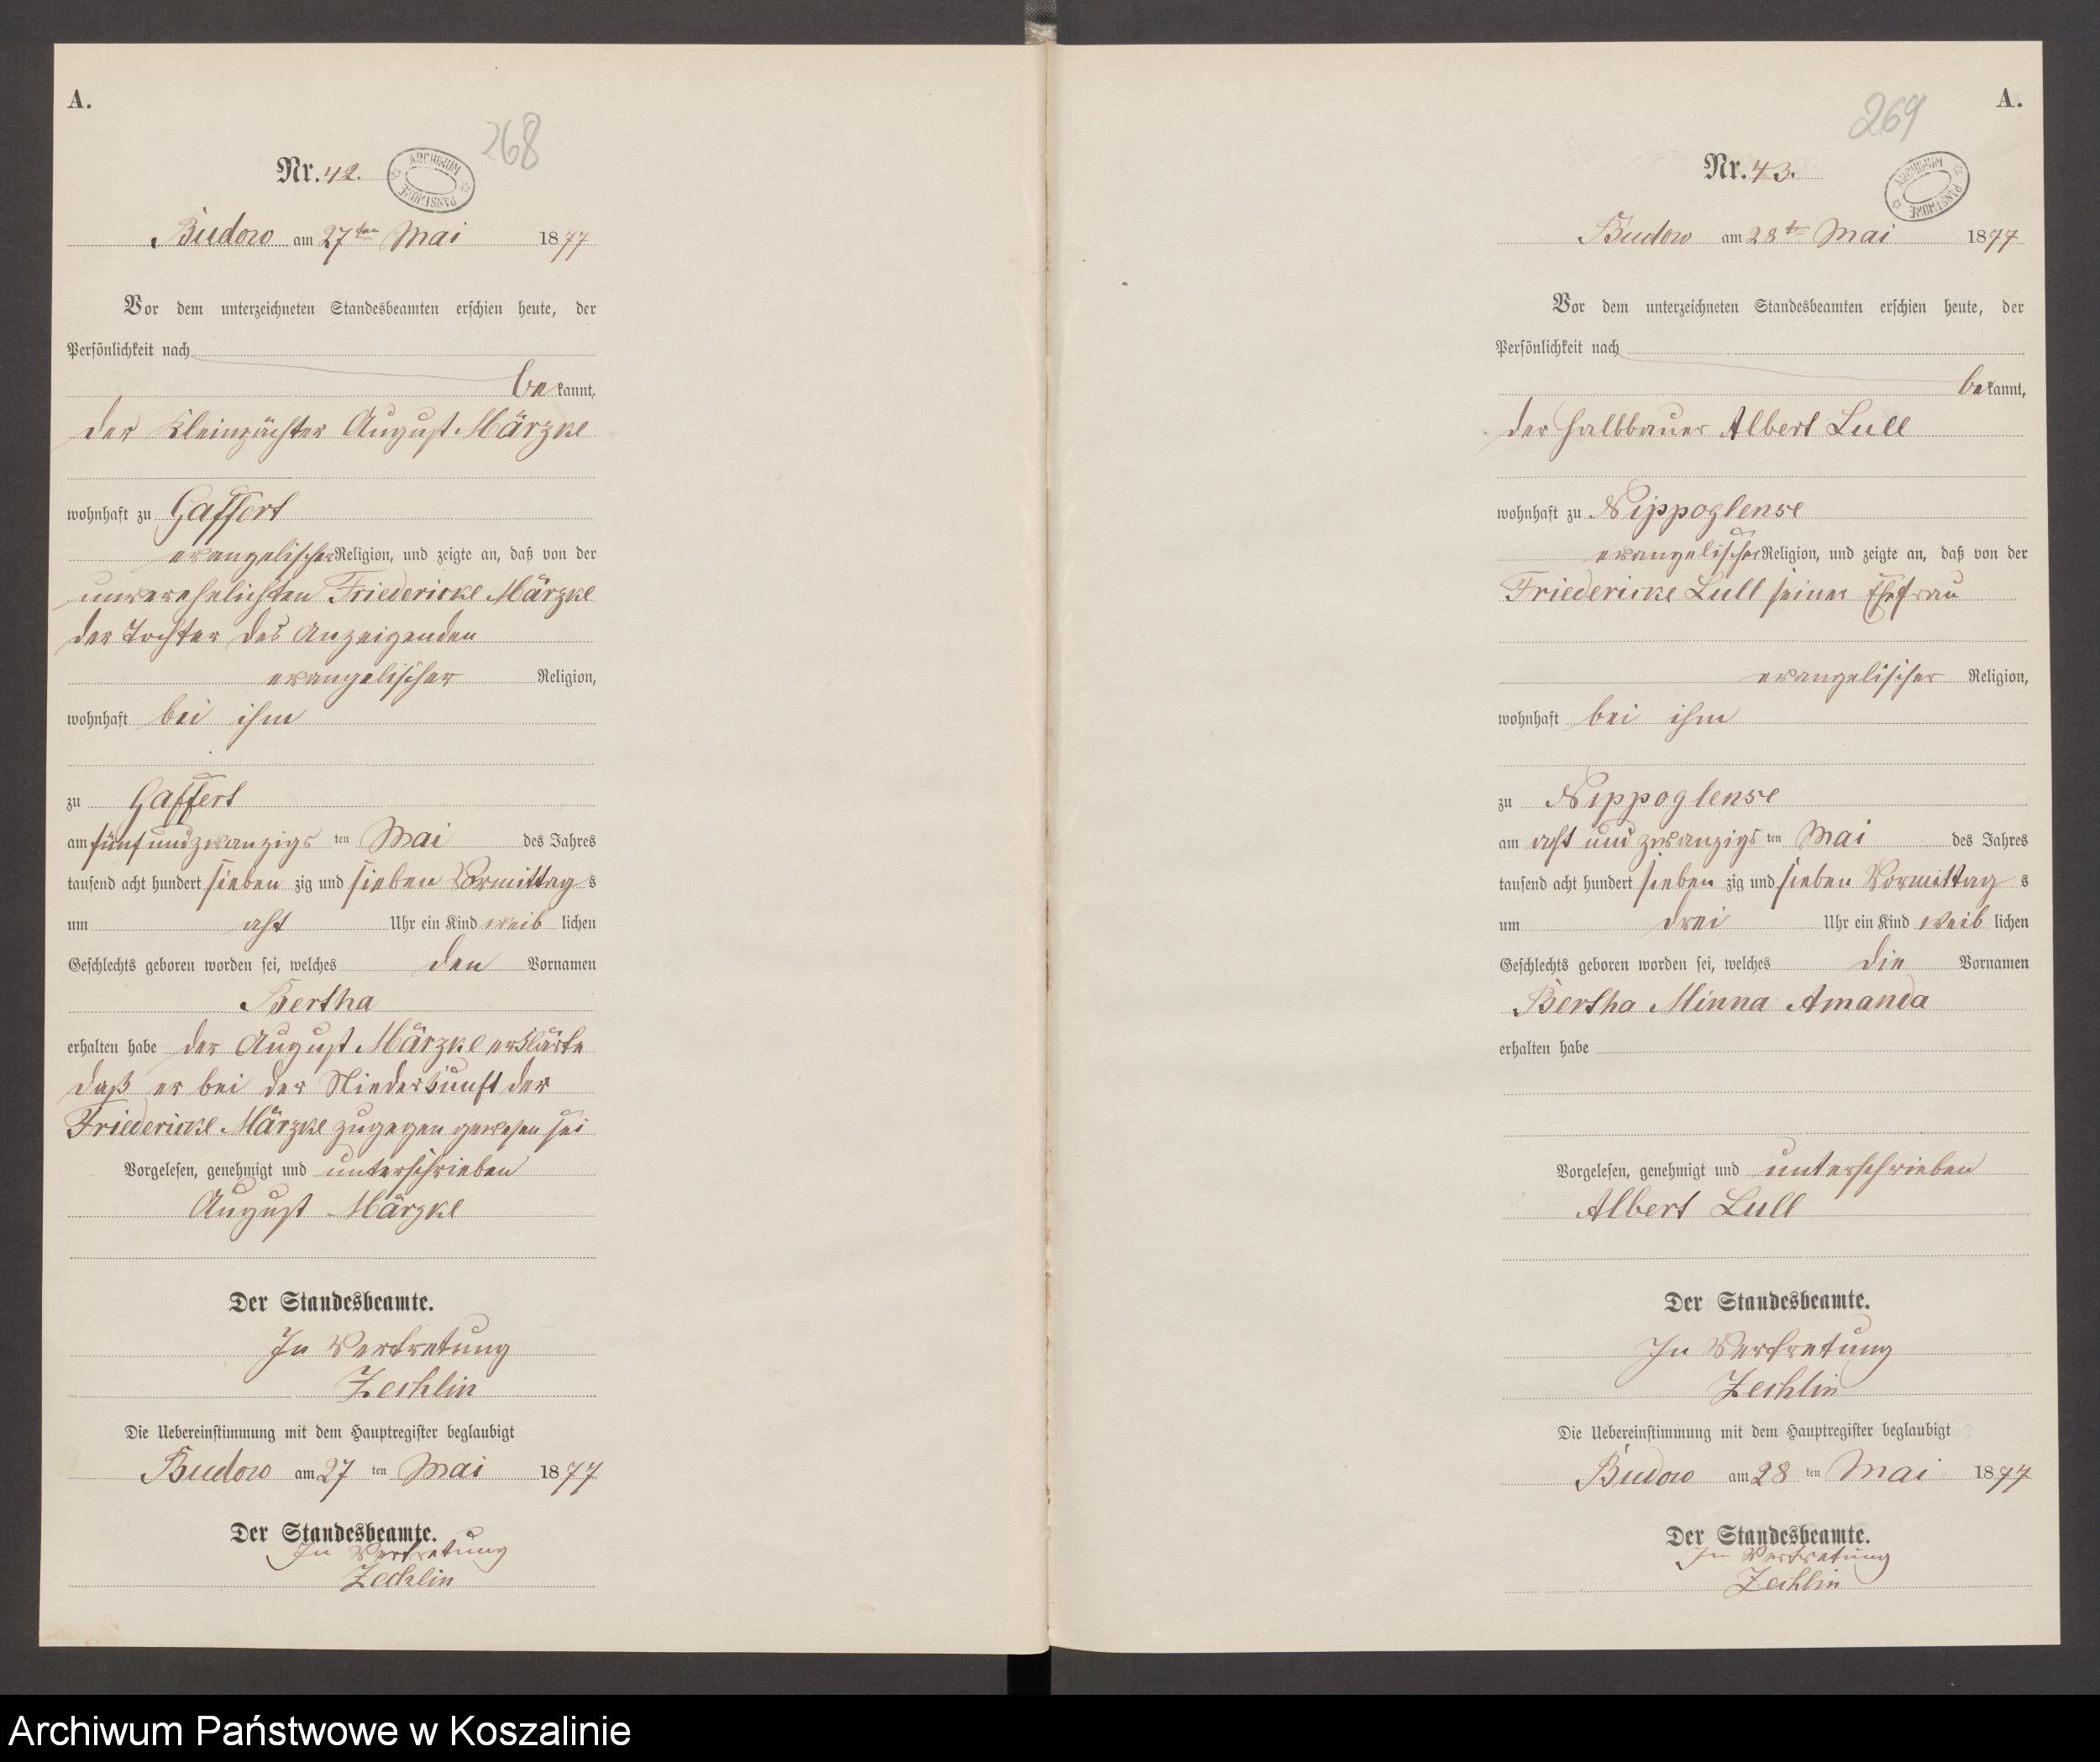 A.
268
Nr. 42.
ARCHIWUM PAŃSTWOWE
Budow am 27ten Mai 1877
Vor dem unterzeichneten Standesbeamten erschien heute, der
Persönlichkeit nach
bekannt,
der Kleinpächter August Märzke
wohnhaft zu Gaffert
evangelischer Religion, und zeigte an, daß von der
unverehelichten Friedericke Märzke
der Tochter des Anzeigenden
evangelischer Religion,
wohnhaft bei ihm
zu Gaffert
am fünfundzwanzigs ten Mai des Jahres
tausend acht hundert sieben zig und sieben Vormittag s
um acht Uhr ein Kind weib lichen
Geschlechts geboren worden sei, welches den Vornamen
Bertha
erhalten habe der August Märzke erklärte
daß er bei der Niederkunft der
Friedericke Märzke zugegen gewesen sei
Vorgelesen, genehmigt und unterschrieben
August Märzke
Der Standesbeamte.
In Vertretung
Zechlin
Die Uebereinstimmung mit dem Hauptregister beglaubigt
Budow am 27 ten Mai 1877
Der Standesbeamte.
In Vertretung
Zechlin
269
A.
Nr. 43.
ARCHIWUM PAŃSTWOWE
Budow am 28te Mai 1877
Vor dem unterzeichneten Standesbeamten erschien heute, der
Persönlichkeit nach
bekannt,
der Halbbauer Albert Lull
wohnhaft zu Nippoglense
evangelischer Religion, und zeigte an, daß von der
Friedericke Lull seiner Ehefrau
evangelischer Religion,
wohnhaft bei ihm
zu Nippoglense
am acht und zwanzigs ten Mai des Jahres
tausend acht hundert sieben zig und sieben Vormittag s
um drei Uhr ein Kind weib lichen
Geschlechts geboren worden sei, welches die Vornamen
Bertha Minna Amanda
erhalten habe
Vorgelesen, genehmigt und unterschrieben
Albert Lull
Der Standesbeamte.
In Vertretung
Zechlin
Die Uebereinstimmung mit dem Hauptregister beglaubigt
Budow am 28 ten Mai 1877
Der Standesbeamte.
In Vertretung
Zechlin
Archiwum Państwowe w Koszalinie